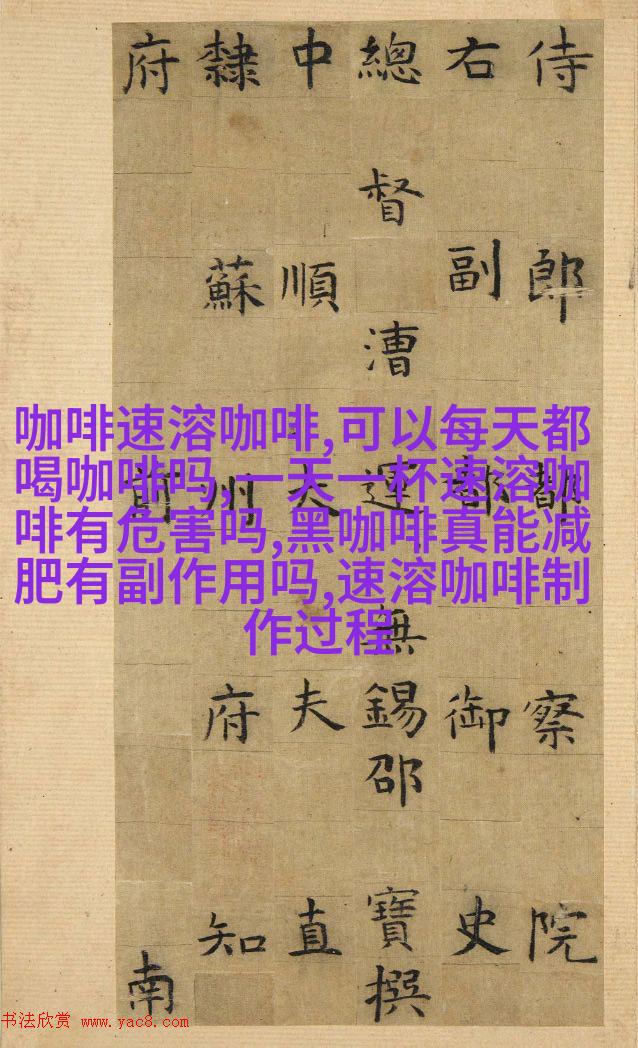 侍郎都察院
右副都御史
總督漕運無錫邵寶撰
中順大夫直
隸蘇州府知
府前南
咖啡速溶咖啡,可以每天都
喝咖啡吗,一天一杯速溶咖
啡有危害吗,黑咖啡真能减
肥有副作用吗,速溶咖啡制
作过程
书法欣赏 www.yac8.com